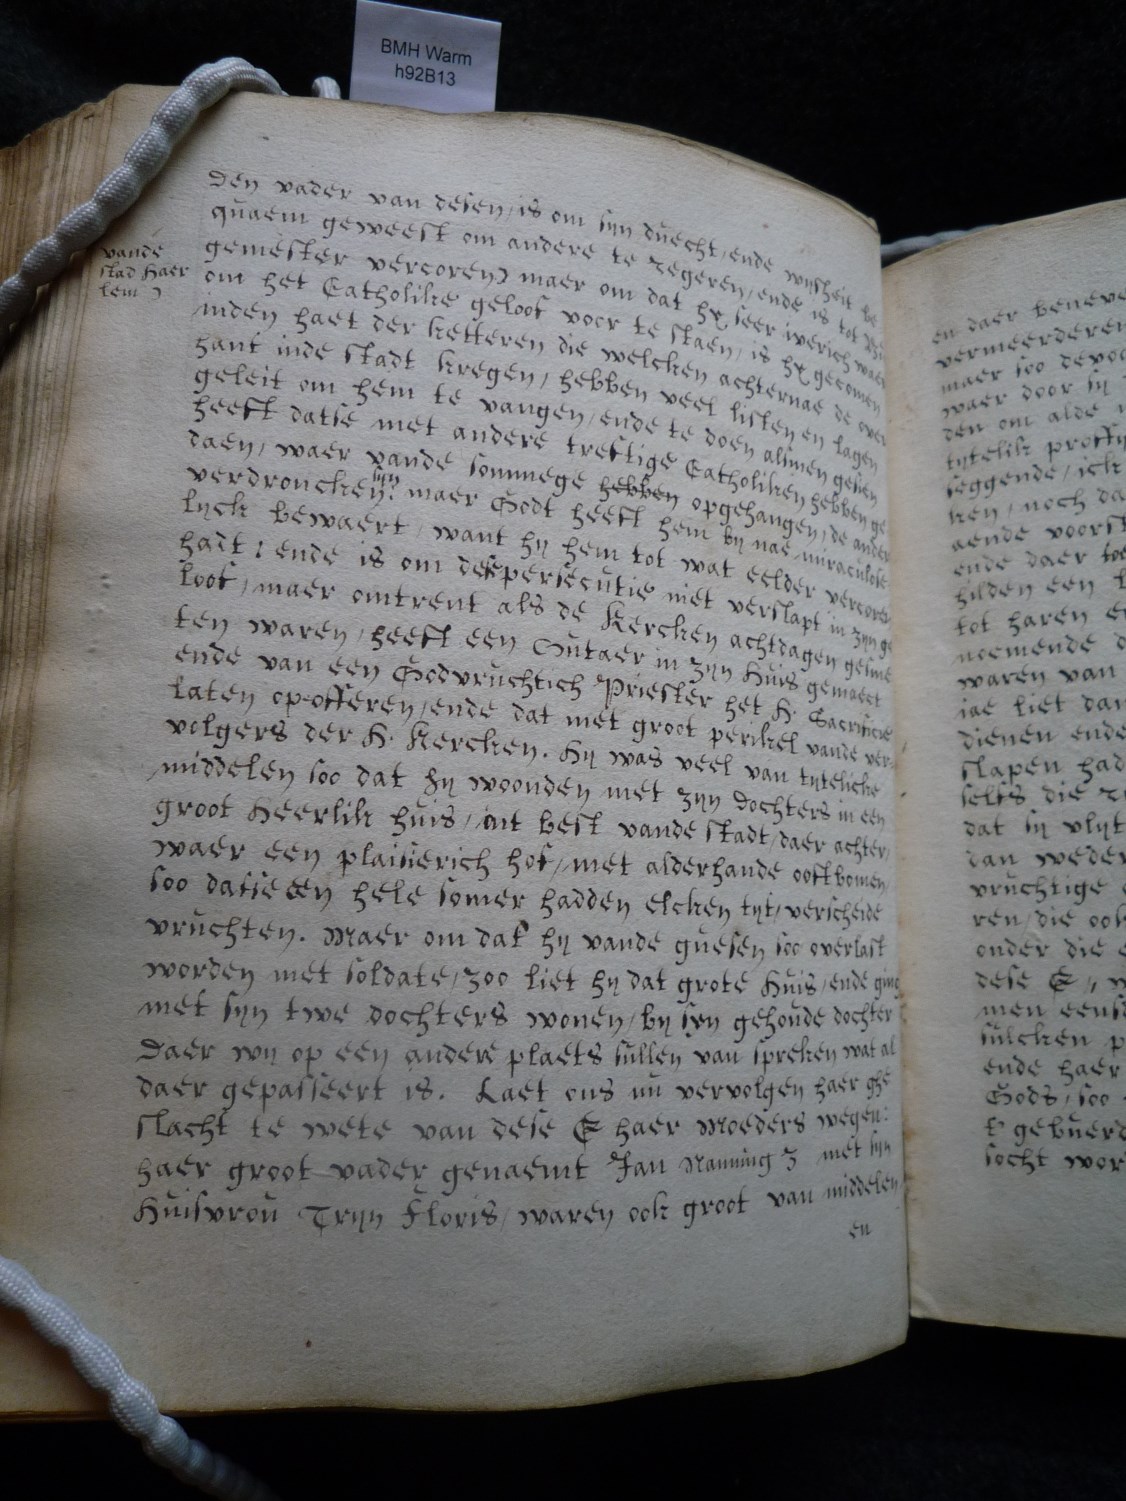 BMH Warm
h92B13
vande
stad Haer
lem
den vader van desen, is om syn duecht, ende wysheit be
quaem geweest om andere te regeren, ende is tot Bur
gemester vercoren maer om dat hy seer iverich waer
om het Catholike geloof voor te staen, is hy gecomen
inden haet der ketteren die welcken achternae de over
hant inde stadt kregen, hebben veel listen en lagen
geleit om hem te vangen, ende te doen alsmen gesien
heeft datse met andere treftige Catholiken hebben ge
daen, waer vande sommege hebben opgehangen, de ander
verdroncken syn: maer Godt heeft hem by nae miraculose
lyck bewaert, want hy hem tot wat eelder vercoren
hadt: ende is om dese persecutie niet verslapt in zyn ge
loof, maer omtrent als de Kercken achtdagen gesloe
ten waren, heeft een Outaer in zyn Huis gemaect
ende van een Godvruchtich Priester het H. Sacrificie
laten op-offeren, ende dat met groot perikel vande ver-
volgers der H. Kercken. Hy was veel van tytelicke
middelen soo dat hy woonden met zyn dochters in een
groot Heerlik huis, int best vande stadt, daer achter,
waer een plaisierich hof, met alderhande ooftbomen
soo datse een hele somer hadden elcken tyt, verscheide
vruchten. Maer om dat hy vande guesen soo overlast
worden met soldate, zoo liet hy dat grote Huis, ende ging
met syn twe dochters wonen, by syn gehoude dochter
Daer wy op een andere plaets sullen van spreken wat al
daer gepasseert is. Laet ons nu vervolgen haer ghe
slacht te wete van dese E haer Moeders wegen:
haer groot-vader genaemt Jan Nanning z met syn
Huisvrou Tryn Floris, waren ook groot van middelen
en
en daer beneve
vermeerderen
maer soo devo
waer door sy
den om alde
tytelik proffy
seggende, ick
ken, noch da
aende voorst
ende daer toe
hilden een
tot haren e
noemende d
waren van
iae liet dan
dienen ende
slapen had
selfs die
dat sy vlyt
dan weder
vruchtige
ren, die ook
onder die
dese E,
men eens
sulcken p
ende haer
Gods, soo
t' gebuerd
socht wor